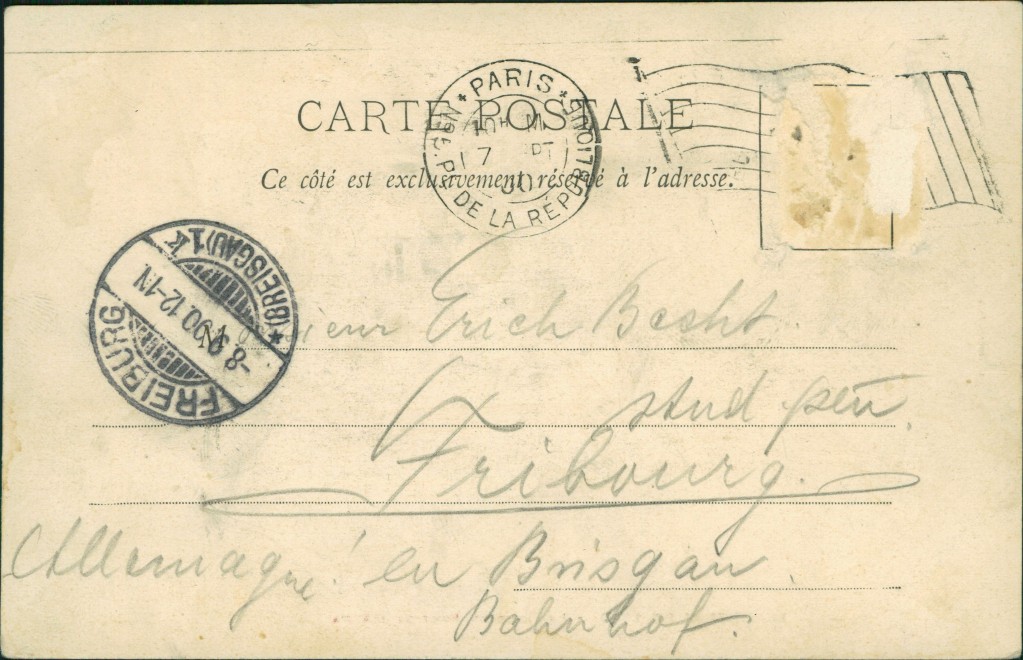 CARTE POSTALE
Ce côté est exclusivement réservé à l'adresse.
PARIS
7
DE LA RÉPUBLIQUE
FREIBURG
(BREISGAU) 1 k
-8.9.00.12-1N
Erich Becht
stud
Fribourg.
Allemagne en Brisgau.
Bahnhof.